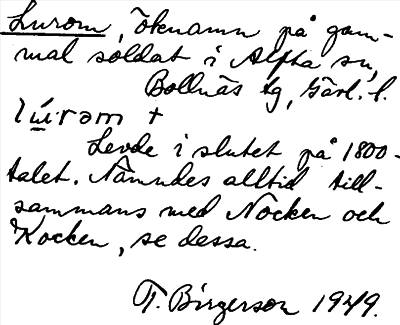 Lurom, öknamn på gam-
mal soldat i Alfta sn,
Bollnäs tg, Gävl. l.
lúrom +
Levde i slutet på 1800-
talet. Nämndes alltid till-
sammans med Nocken och
Kocken, se dessa.
T. Birgerson 1949.